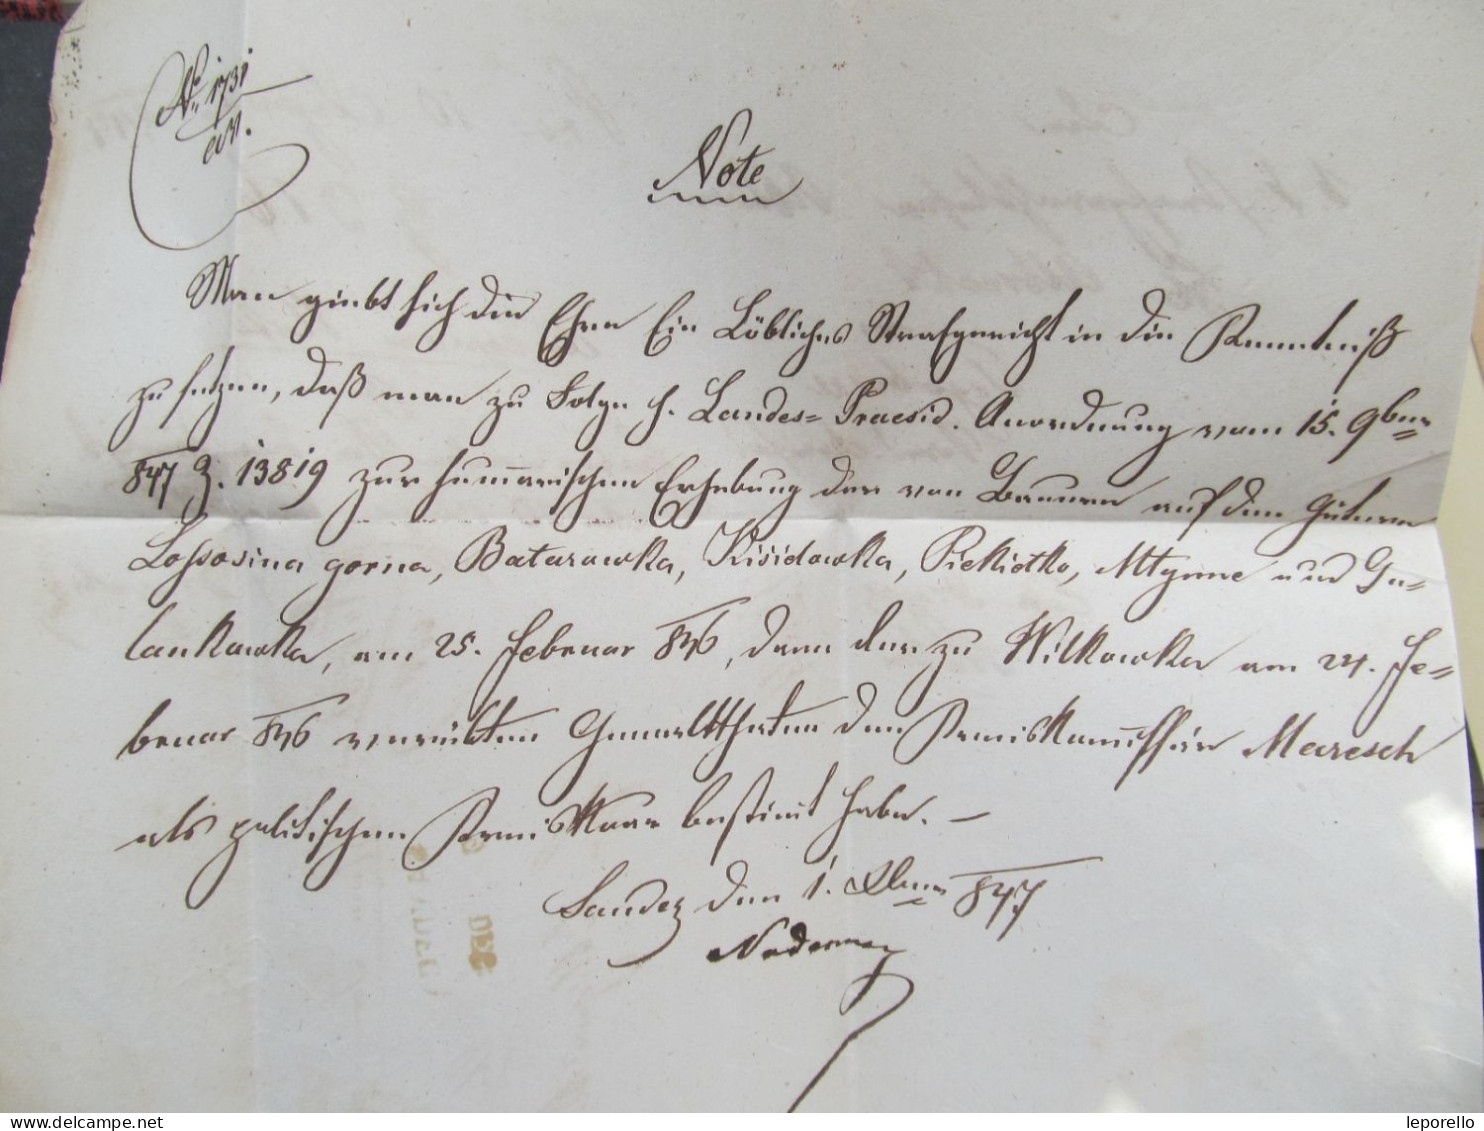 № 1731
civ.
Note
Man giebt sich die Ehre Ein Löbliches Strafgericht in die Kenntniß
zu setzen, daß man zu Folge h. Landes= Praesid. Anordnung vom 15. 9ber
847 Z. 13819 zur summarischen Erhebung der von Bauern auf den Gütern
Lossosina gorna, Batarowka, Kisidowka, Piekiotko, Mtynne und Ga-
lankowka, am 25. Februar 846, dann der zu Wilkowka am 24. Fe=
bruar 846 verübten Gewaltthaten den Kreiskommissär Maresch
als politischen Kreis bestimt habe. —
Sandez den 1. Xber 847
DEC
leporello